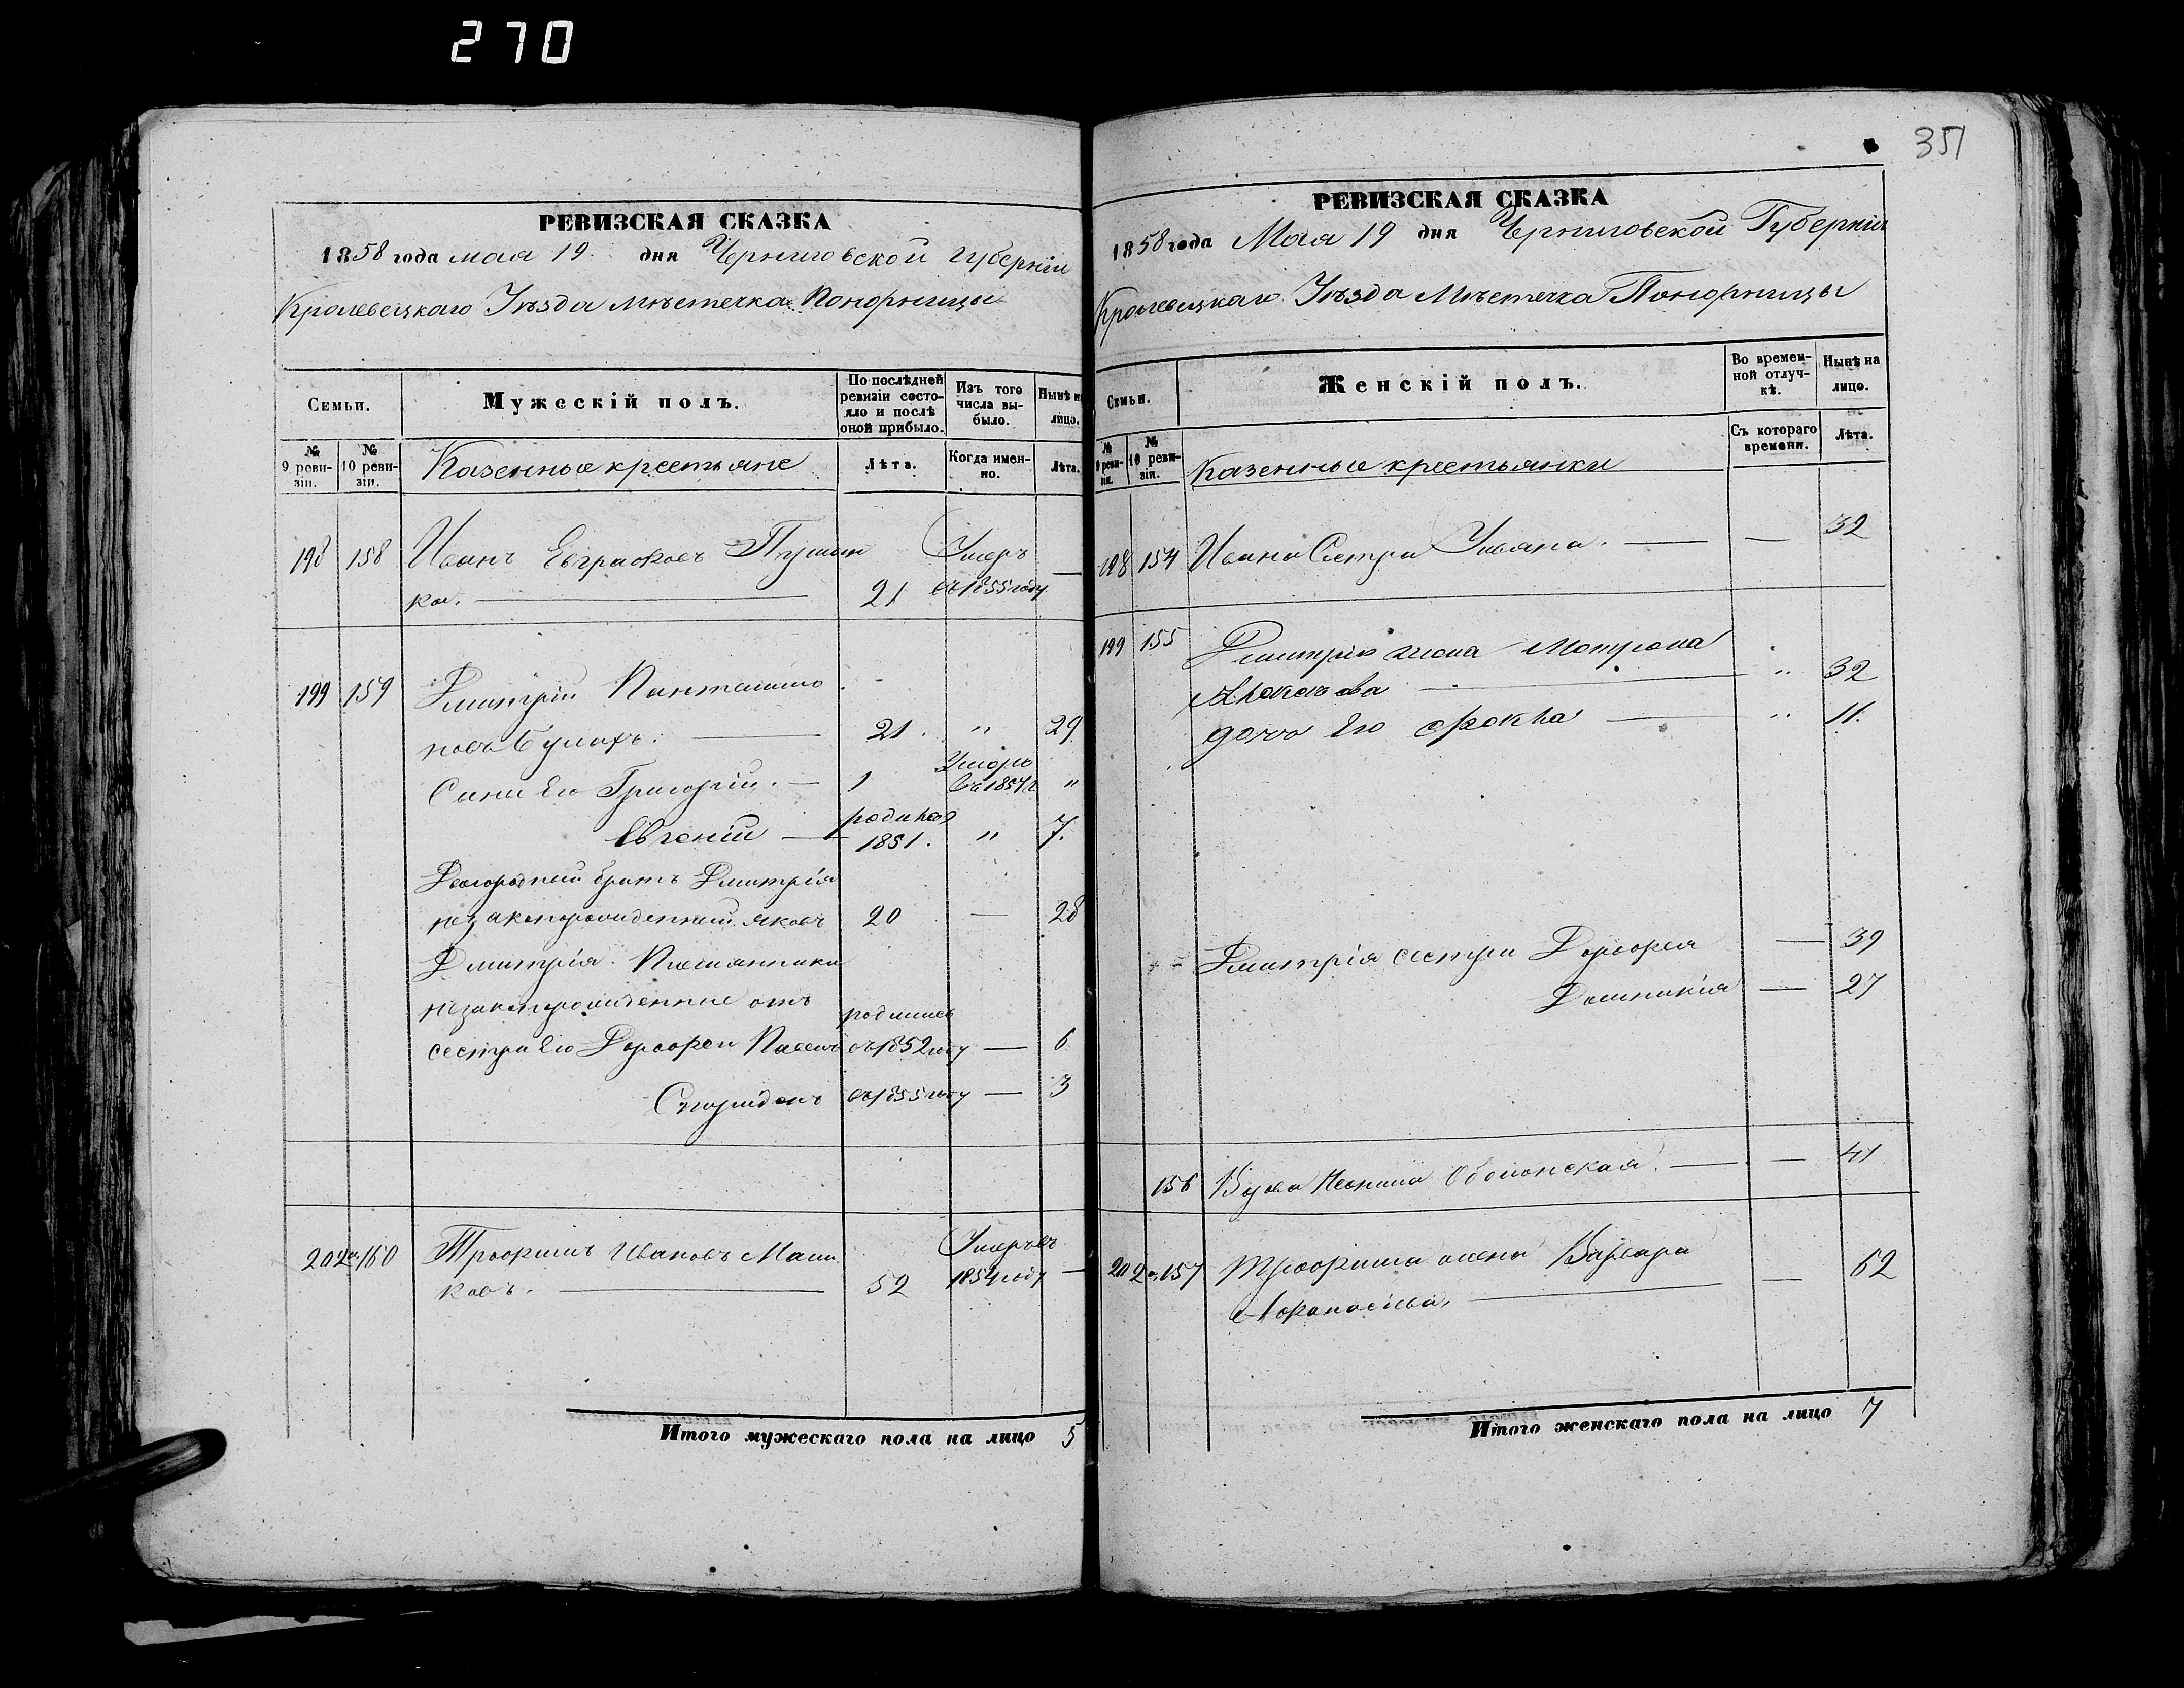 270
351
РЕВИЗСКАЯ СКАЗКА
1858 года мая 19 дня Черниговской губерніи
Кролевецкаго Уѣзда Мѣстечка Понорницы
Семьи.
Мужескій полъ.
По послѣдней ревизіи состояло и послѣ оной прибыло.
Изъ того числа выбыло.
Нынѣ на лицо.
№ 9 ревизіи.
№ 10 ревизіи.
Казенные крестьяне
Лѣта.
Когда именно.
Лѣта.
198 158 Иванъ Умеръ
ка. — 21 въ 1855 году —
199 159 Дмитрій
21 " 29
Сыни Его Григорій. — 1 Умеръ въ 1854 г "
Евгеній — родился 1851. " 7.
братъ Дмитрія
незаконорожденный Яковъ 20 — 28
Дмитрія Племянники
незаконорожденные отъ родился
сестры Его въ 1852 году — 6
Спиридонъ въ 1855 году — 3
202 160 Трофимъ Ивановъ Маш Умеръ въ
ковъ. — 52 1854 году —
Итого мужескаго пола на лицо 5
РЕВИЗСКАЯ СКАЗКА
1858 года Мая 19 дня Черниговской Губерніи
Кролевецкаго Уѣзда Мѣстечка Понорницы
Семьи.
Женскій полъ.
Во временной отлучкѣ.
Нынѣ на лицо.
№ 9 ревизіи.
№ 10 ревизіи.
Казенные крестьянки
Съ котораго времени.
Лѣта.
198 154 Ивана Сестра Ульяна. — — 32
199 155 Дмитрія жена Мотрона
— " 32
дочь Его Фекла — " 11.
Дмитрія сестры — 39
Домникія — 27
156 Вдова Оболонская. — — 41
202 157 Трофима жена Варвара
Афанасіева. — — 62
Итого женскаго пола на лицо 7